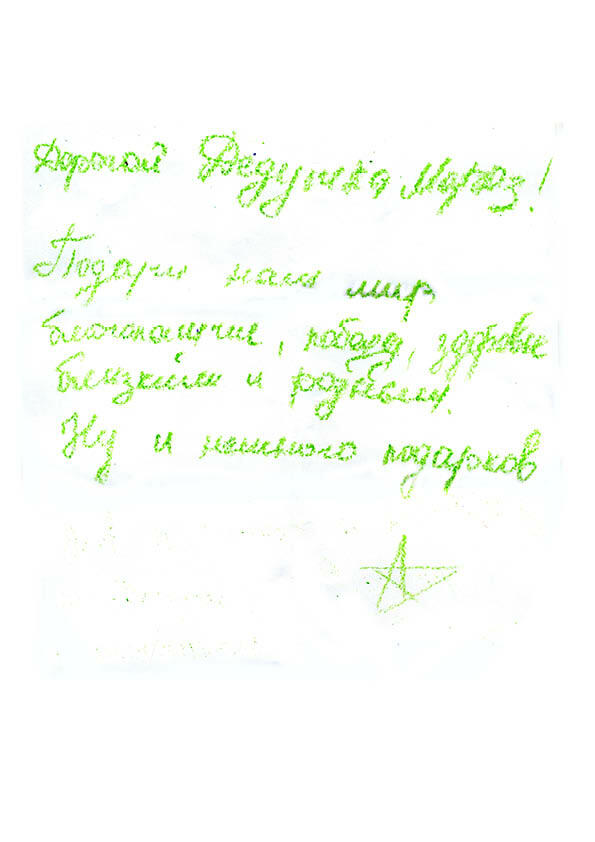 Дорогой Дедушка Мороз!
Подари нам мир,
благополучие, победа, здоровье
близким и родным.
Ну и немного подарков